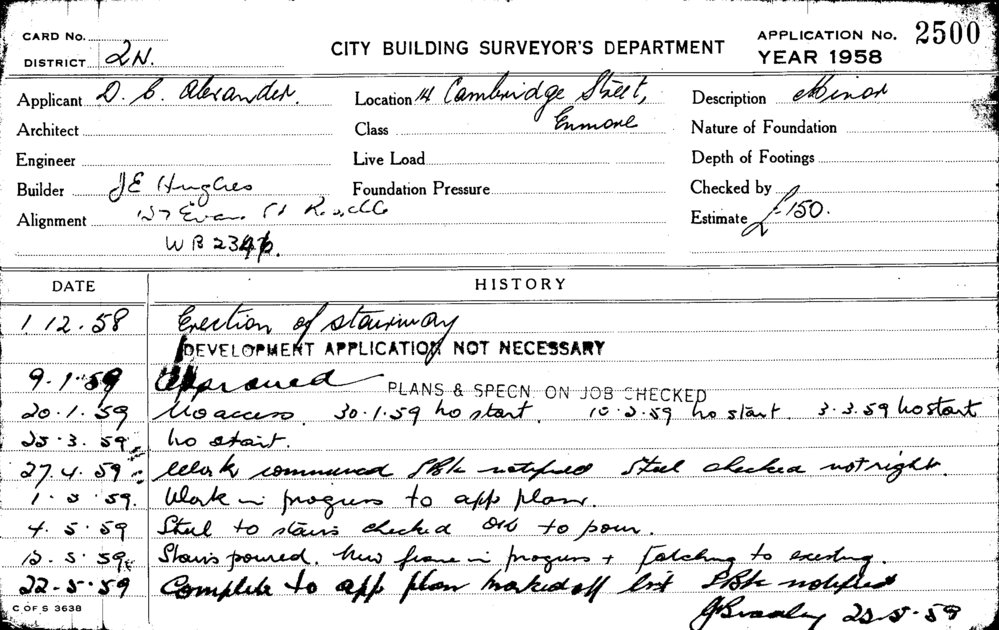 CARD No.
DISTRICT 2N.
CITY BUILDING SURVEYOR'S DEPARTMENT
APPLICATION No. 2500
YEAR 1958
Applicant D. C. Alexander.
Location 14 Cambridge Street,
Enmore
Description Minor
Architect
Class
Nature of Foundation
Engineer
Live Load
Depth of Footings
Builder JE Hughes
Foundation Pressure
Checked by
Alignment 137 Evans St Rozelle
Estimate £150.
WB
DATE HISTORY
1.12.58 Erection of stairway
DEVELOPMENT APPLICATION NOT NECESSARY
9.1.59 Approved PLANS & SPECN. ON JOB CHECKED
20.1.59 No access. 30.1.59 no start. 3.3.59 no start
25.3.59 no start.
27.4.59 Work commenced notified Steel checked not right.
1.5.59. Work in progress to app plan.
4.5.59 Steel to stairs checked OK to pour.
Stairs poured. New in progress + to existing.
22-5-59 Complete to app plan marked off list notified
59
C OF S 3638